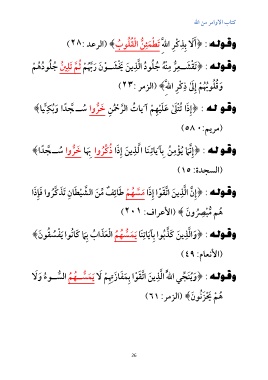 كتاب الأوامر من الله
وقوله : ﴿أَلَا بِذِكْرِ اللَّهِ تَطْمَئِنُّ الْقُلُوبُ﴾ (الرعد :٢٨)
وقوله : ﴿تَقْشَعِرُّ مِنْهُ جُلُودُ الَّذِينَ يَخْشَوْنَ رَبَّهُمْ ثُمَّ تَلِينُ جُلُودُهُمْ
وَقُلُوبُهُمْ إِلَىٰ ذِكْرِ اللَّهِ﴾ (الزمر :٢٣)
وقوله : ﴿إِذَا تُتْلَىٰ عَلَيْهِمْ آيَاتُ الرَّحْمَٰنِ خَرُّوا سُجَّدًا وَبُكِيًّا﴾
(مريم:٥٨٠)
وقوله : ﴿إِنَّمَا يُؤْمِنُ بِآيَاتِنَا الَّذِينَ إِذَا ذُكِّرُوا بِهَا خَرُّوا سُجَّدًا﴾
(السجدة: ١٥)
وقوله : ﴿إِنَّ الَّذِينَ اتَّقَوْا إِذَا مَسَّهُمْ طَائِفٌ مِّنَ الشَّيْطَانِ تَذَكَّرُوا فَإِذَا
هُم مُّبْصِرُونَ ﴾ (الأعراف: ٢٠١)
وقوله : ﴿وَالَّذِينَ كَذَّبُوا بِآيَاتِنَا يَمَسُّهُمُ الْعَذَابُ بِمَا كَانُوا يَفْسُقُونَ﴾
(الأنعام: ٤٩)
وقوله : ﴿وَيُنَجِّي اللَّهُ الَّذِينَ اتَّقَوْا بِمَفَازَتِهِمْ لَا يَمَسُّهُمُ السُّوءُ وَلَا
هُمْ يَحْزَنُونَ﴾ (الزمر: ٦١)
26